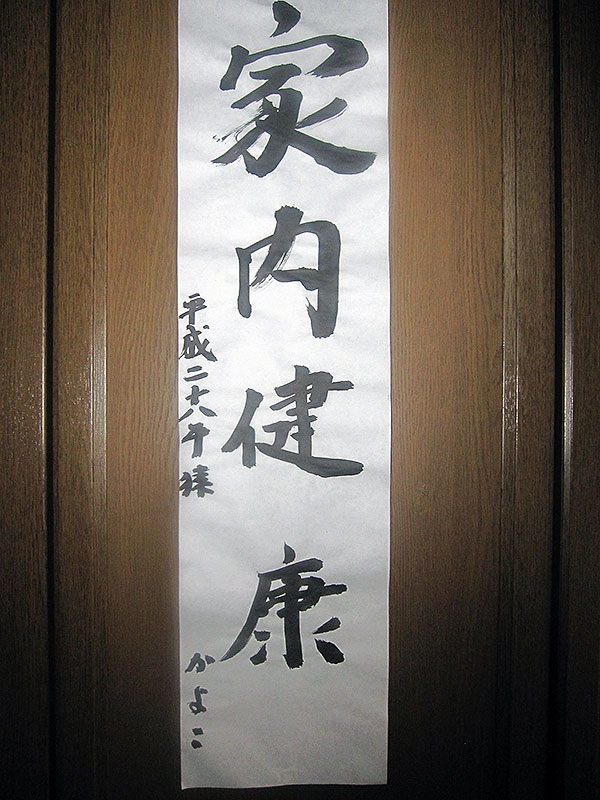 家内健康
平成二十八年猿
かよこ